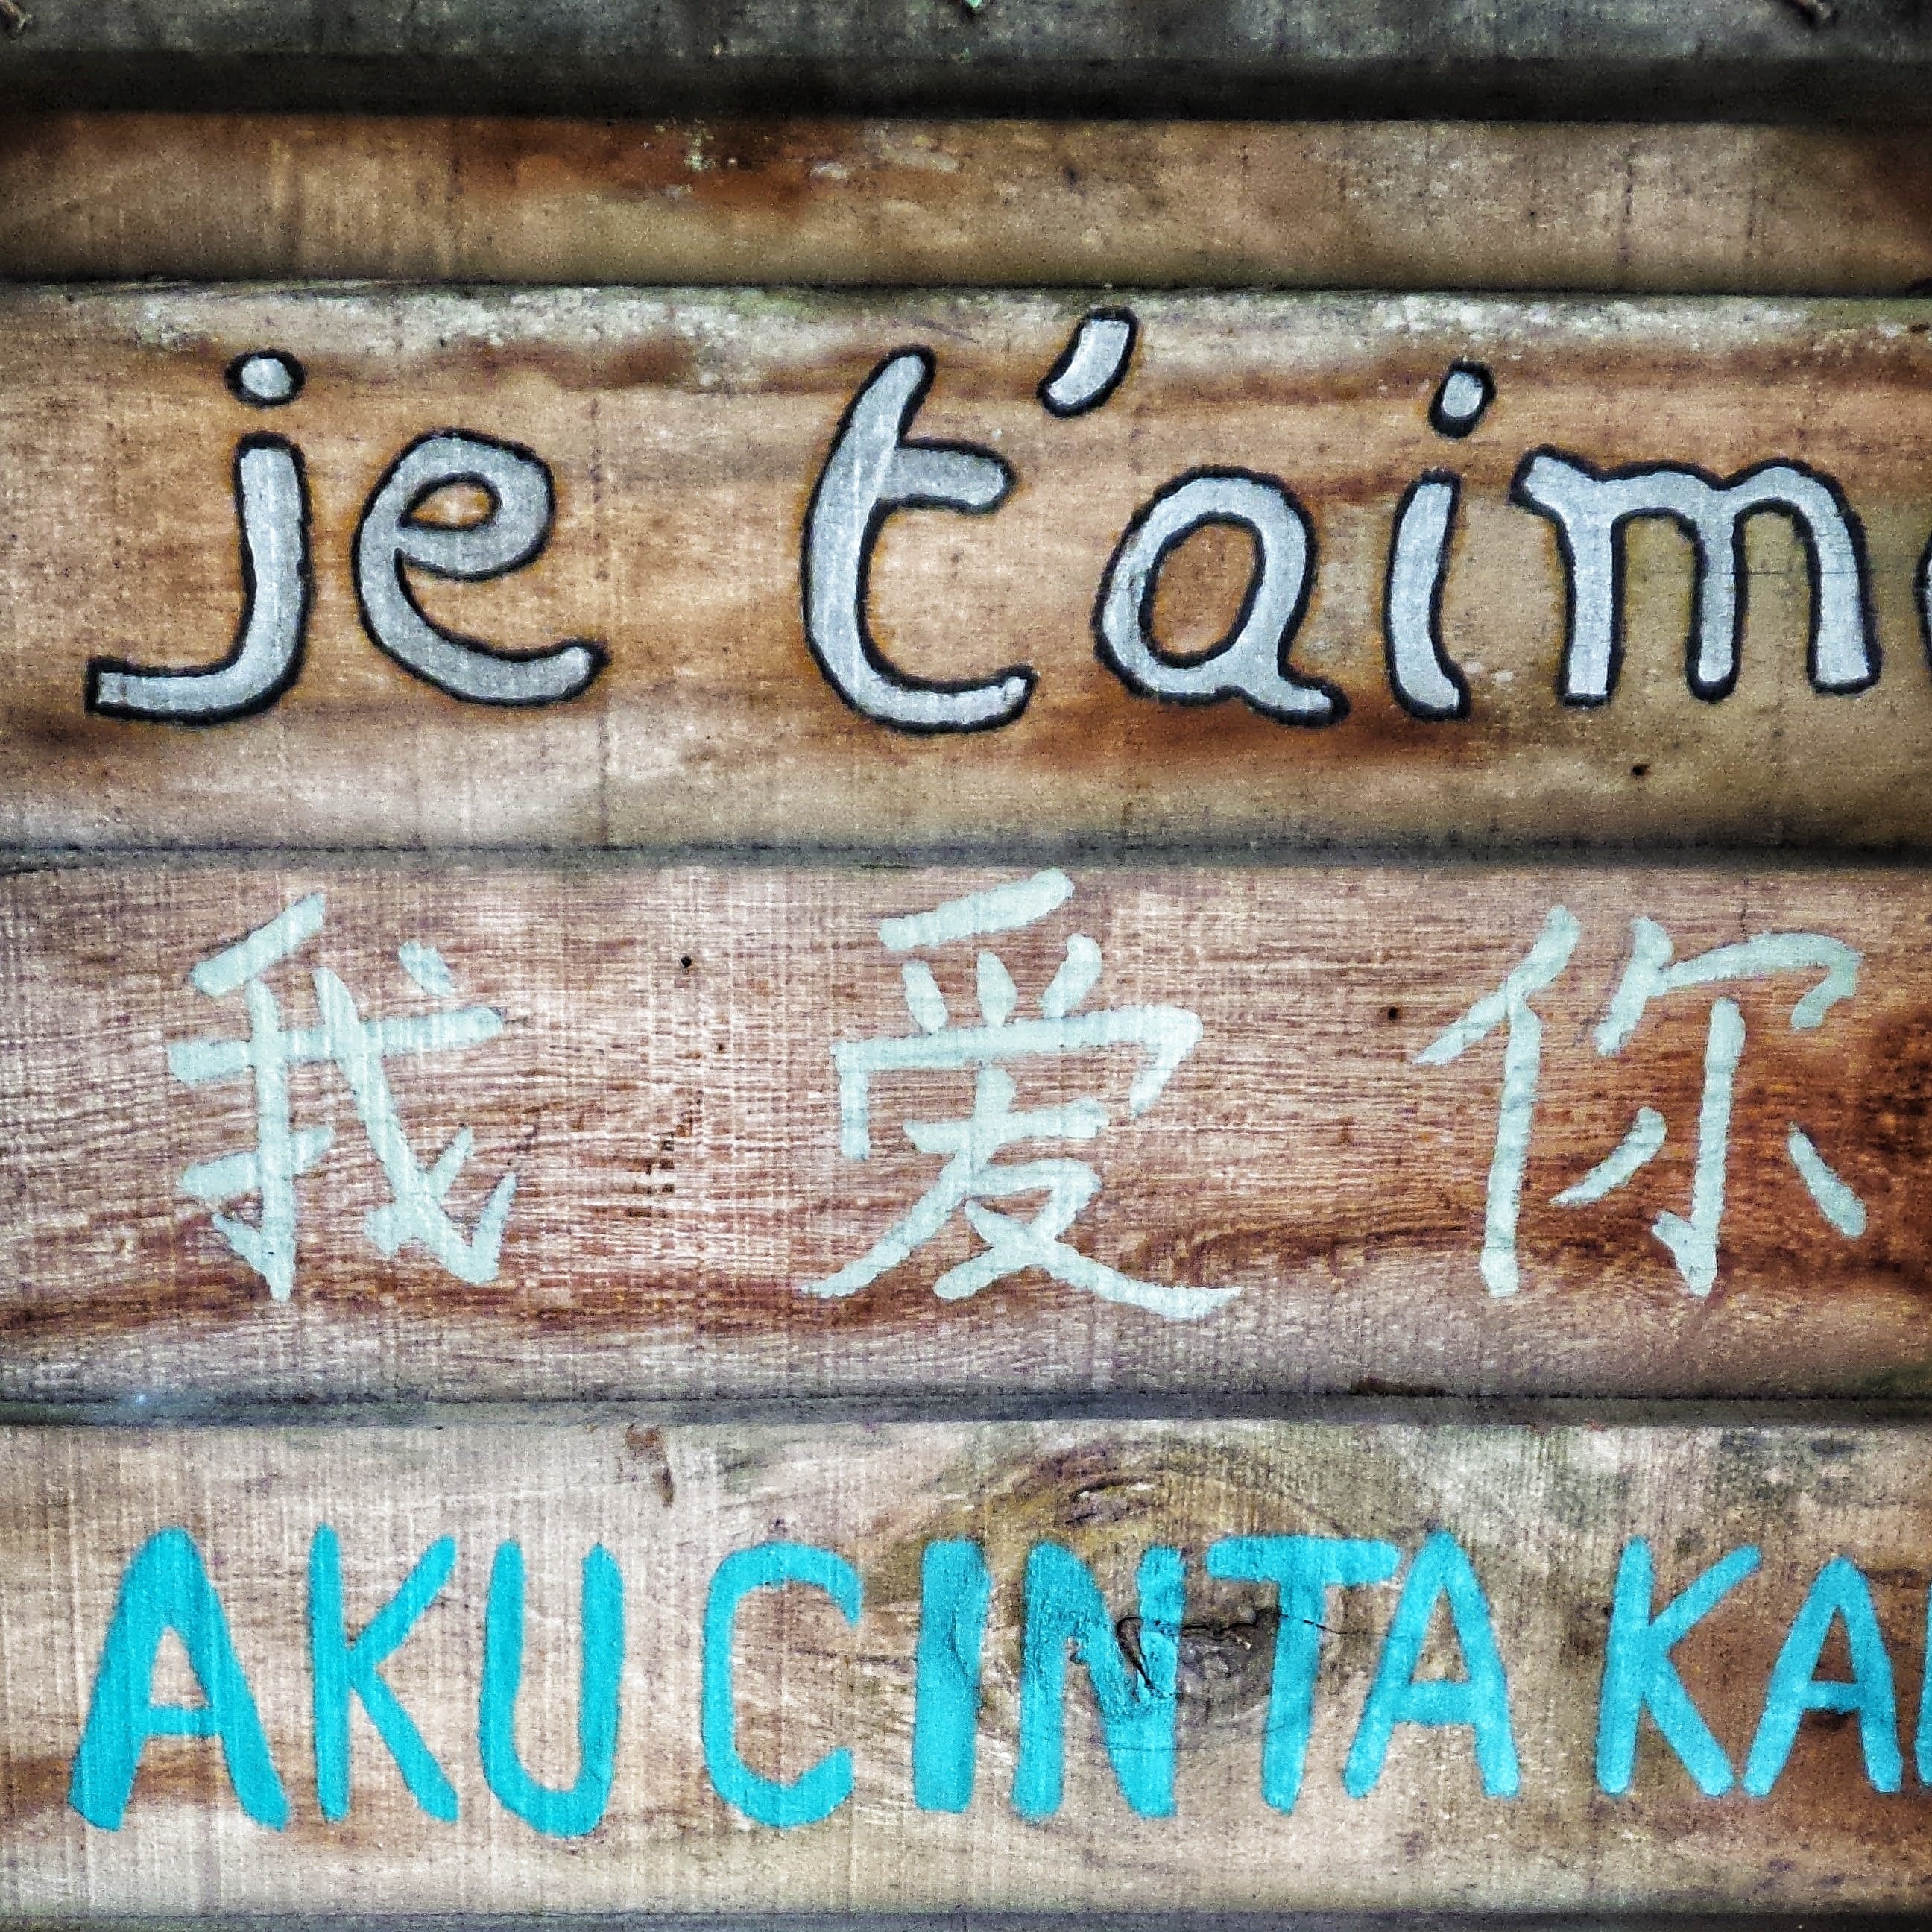 je t'aim
我 爱 你
AKU CINTA KA